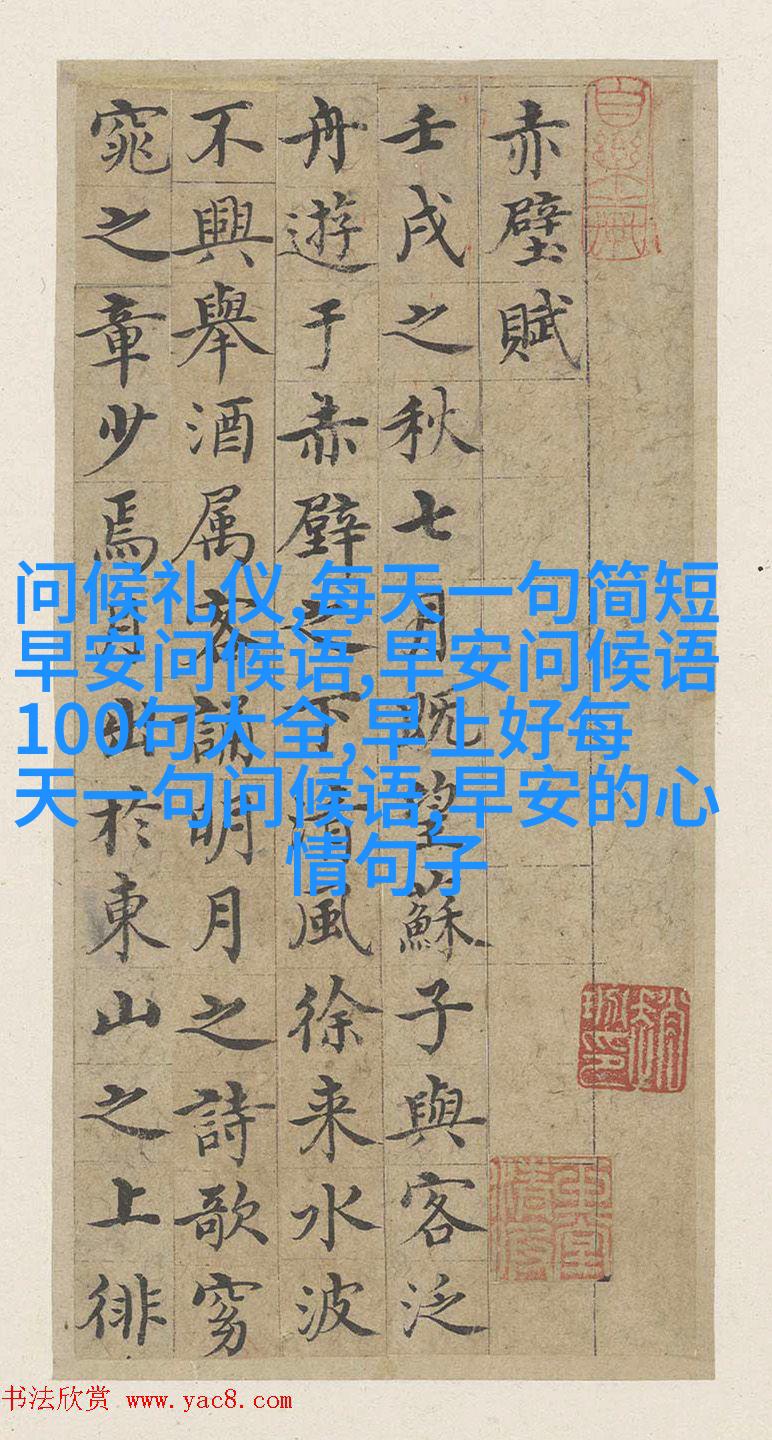 赤壁賦
壬戌之秋七月既望蘇子與客泛
舟遊于赤壁之下清風徐来水波
不興舉酒属客誦明月之詩歌窈
窕之章少焉月出於東山之上徘
问候礼仪,每天一句简短
早安问候语,早安问候语
100句大全,早上好每
天一句问候语,早安的心
情句子
书法欣赏 www.yac8.com